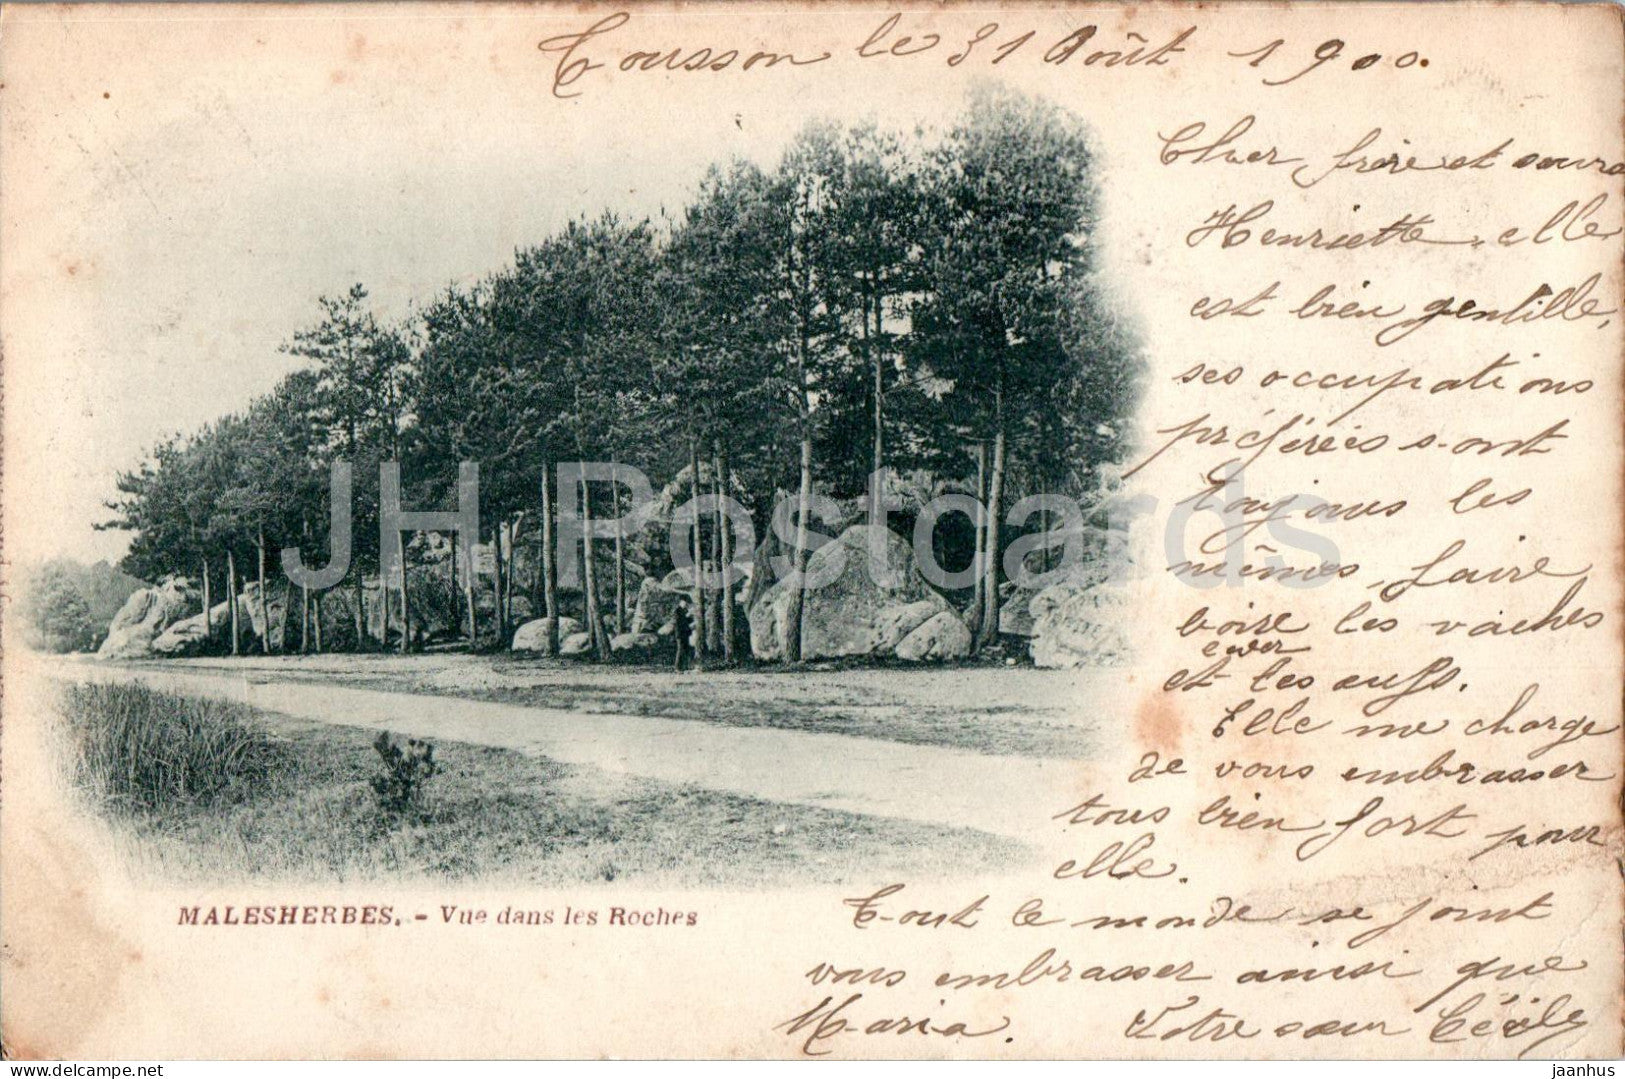 Tousson le 31 Août 1900.
Cher frère et soeur
Henriette, elle
est bien gentille,
ses occupations
préférées sont
toujours les
mêmes, faire
boire les vaches
et lever
les oeufs.
Elle me charge
de vous embrasser
tous bien fort pour
elle.
Tout le monde se joint
vous embrasser ainsi que
Maria. Votre sœur Cécile
MALESHERBES. - Vue dans les Roches
JH Postcards
www.delcampe.net
jaanhus